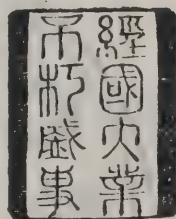 經國大業
不朽盛事